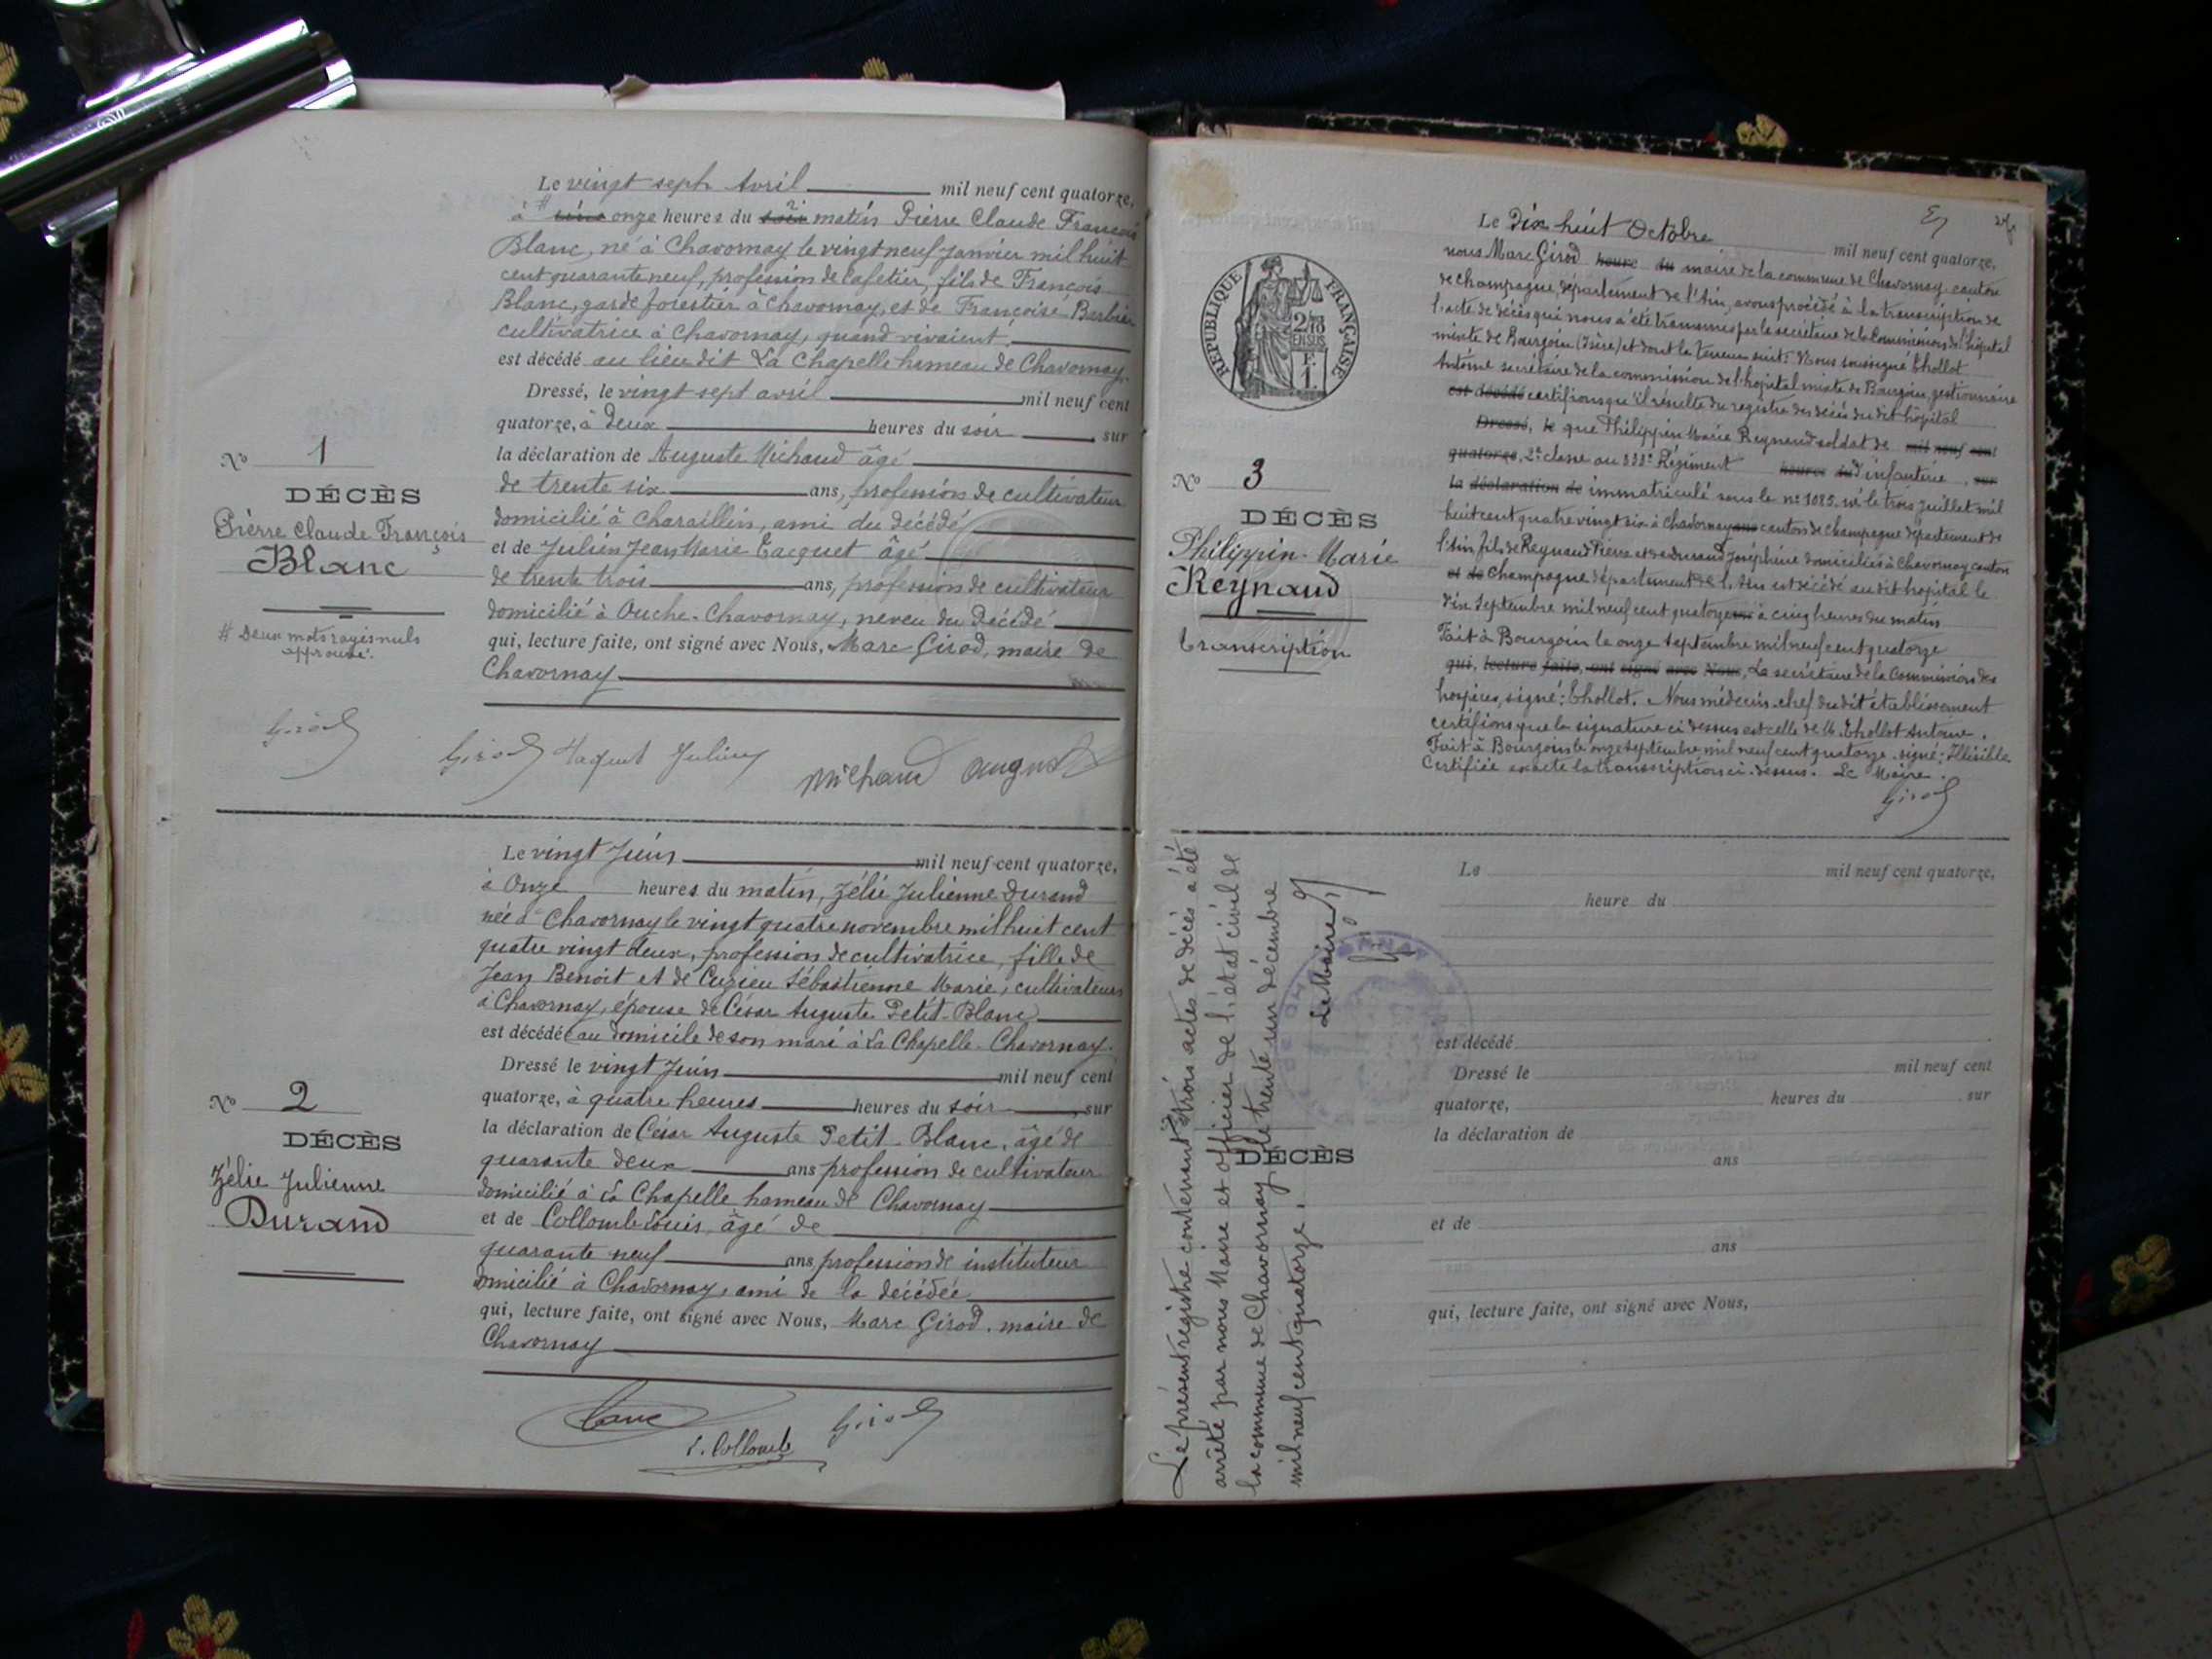 Le vingt sept Avril mil neuf cent quatorze,
à # onze heures du soir matin Pierre Claude François
Blanc, né à Chavornay le vingt neuf Janvier mil huit
cent quarante neuf, profession de Cafetier, fils de François
Blanc, garde forestier à Chavornay, et de Françoise Barbier
cultivatrice à Chavornay, quand vivaient,
est décédé au lieu dit La Chapelle hameau de Chavornay.
Dressé, le vingt sept avril mil neuf cent
quatorze, à Deux heures du soir, sur
la déclaration de Auguste Michaud âgé
de trente six ans, profession de cultivateur
domicilié à Charaillin, ami du décédé
et de Julien Jean Marie Tacquet âgé
de trente trois ans, profession de cultivateur
domicilié à Ouche-Chavornay, neveu du Décédé
qui, lecture faite, ont signé avec Nous, Marc Girod, maire de
Chavornay
No 1
DÉCÈS
Pierre Claude François
Blanc
# Deux mots rayés nuls
approuvé.
Girod
Girod Julien Michaud August
Le vingt Juin mil neuf cent quatorze,
à Onze heures du matin, Zélie Julienne Durand
née à Chavornay le vingt quatre novembre mil huit cent
quatre vingt deux, profession de cultivatrice, fille de
Jean Benoit et de Cuzieu Sébastienne Marie, cultivateurs
à Chavornay, épouse de César Auguste Petit-Blanc
est décédée au domicile de son mari à La Chapelle-Chavornay.
Dressé le vingt Juin mil neuf cent
quatorze, à quatre heures heures du soir, sur
la déclaration de César Auguste Petit-Blanc, âgé de
quarante deux ans profession de cultivateur
domicilié à La Chapelle hameau de Chavornay
et de Collomb Louis, âgé de
quarante neuf ans, profession de instituteur
domicilié à Chavornay, ami de la décédée
qui, lecture faite, ont signé avec Nous, Marc Girod, maire de
Chavornay
No 2
DÉCÈS
Zélie Julienne
Durand
Blanc
L. Collomb Girod
RÉPUBLIQUE FRANÇAISE
Le Dix huit Octobre mil neuf cent quatorze,
nous Marc Girod heure du maire de la commune de Chavornay canton
de Champagne, département de l'Ain, avons procédé à la transcription de
l'acte de décès qui nous a été transmis par le secrétaire de la Commission de l'hôpital
mixte de Bourgoin (Isère) et dont la teneur suit: Nous soussigné Chollot
Antoine secrétaire de la commission de l'hopital mixte de Bourgoin, gestionnaire
est décédé certifions qu'il résulte du registre des décès du dit hôpital
Dressé, le que Philippin Marie Reynaud soldat de mil neuf cent
quatorze, 2e classe au 333e Régiment heures du d'infanterie, sur
la déclaration de immatriculé sous le no 1085. né le trois Juillet mil
huit cent quatre vingt six à Chavornay ans canton de Champagne département de
l'Ain, fils de Reynaud Pierre et de Durand Joséphine domiciliés à Chavornay canton
et de Champagne département de l'Ain est décédé au dit hopital le
dix Septembre mil neuf cent quatorze ans à cinq heures du matin
Fait à Bourgoin le onze septembre mil neuf cent quatorze
qui, lecture faite, ont signé avec Nous, Le secrétaire de la Commission des
hospices, signé: Chollot. Nous médecin-chef du dit établissement
certifions que la signature ci dessus est celle de M. Chollot Antoine.
Fait à Bourgoin le onze septembre mil neuf cent quatorze. signé: Illisible
Certifiée exacte la transcription ci-dessus. Le Maire.
Girod
No 3
DÉCÈS
Philippin-Marie
Reynaud
transcription
Le présent registre contenant trois actes de décès a été
arrêté par nous Maire et officier de l'état civil de
la commune de Chavornay le trente un décembre
mil neuf cent quatorze.
Le Maire
Le mil neuf cent quatorze,
heure du
est décédé
Dressé le mil neuf cent
quatorze, heures du, sur
la déclaration de
ans
DÉCÈS
et de
ans
qui, lecture faite, ont signé avec Nous,